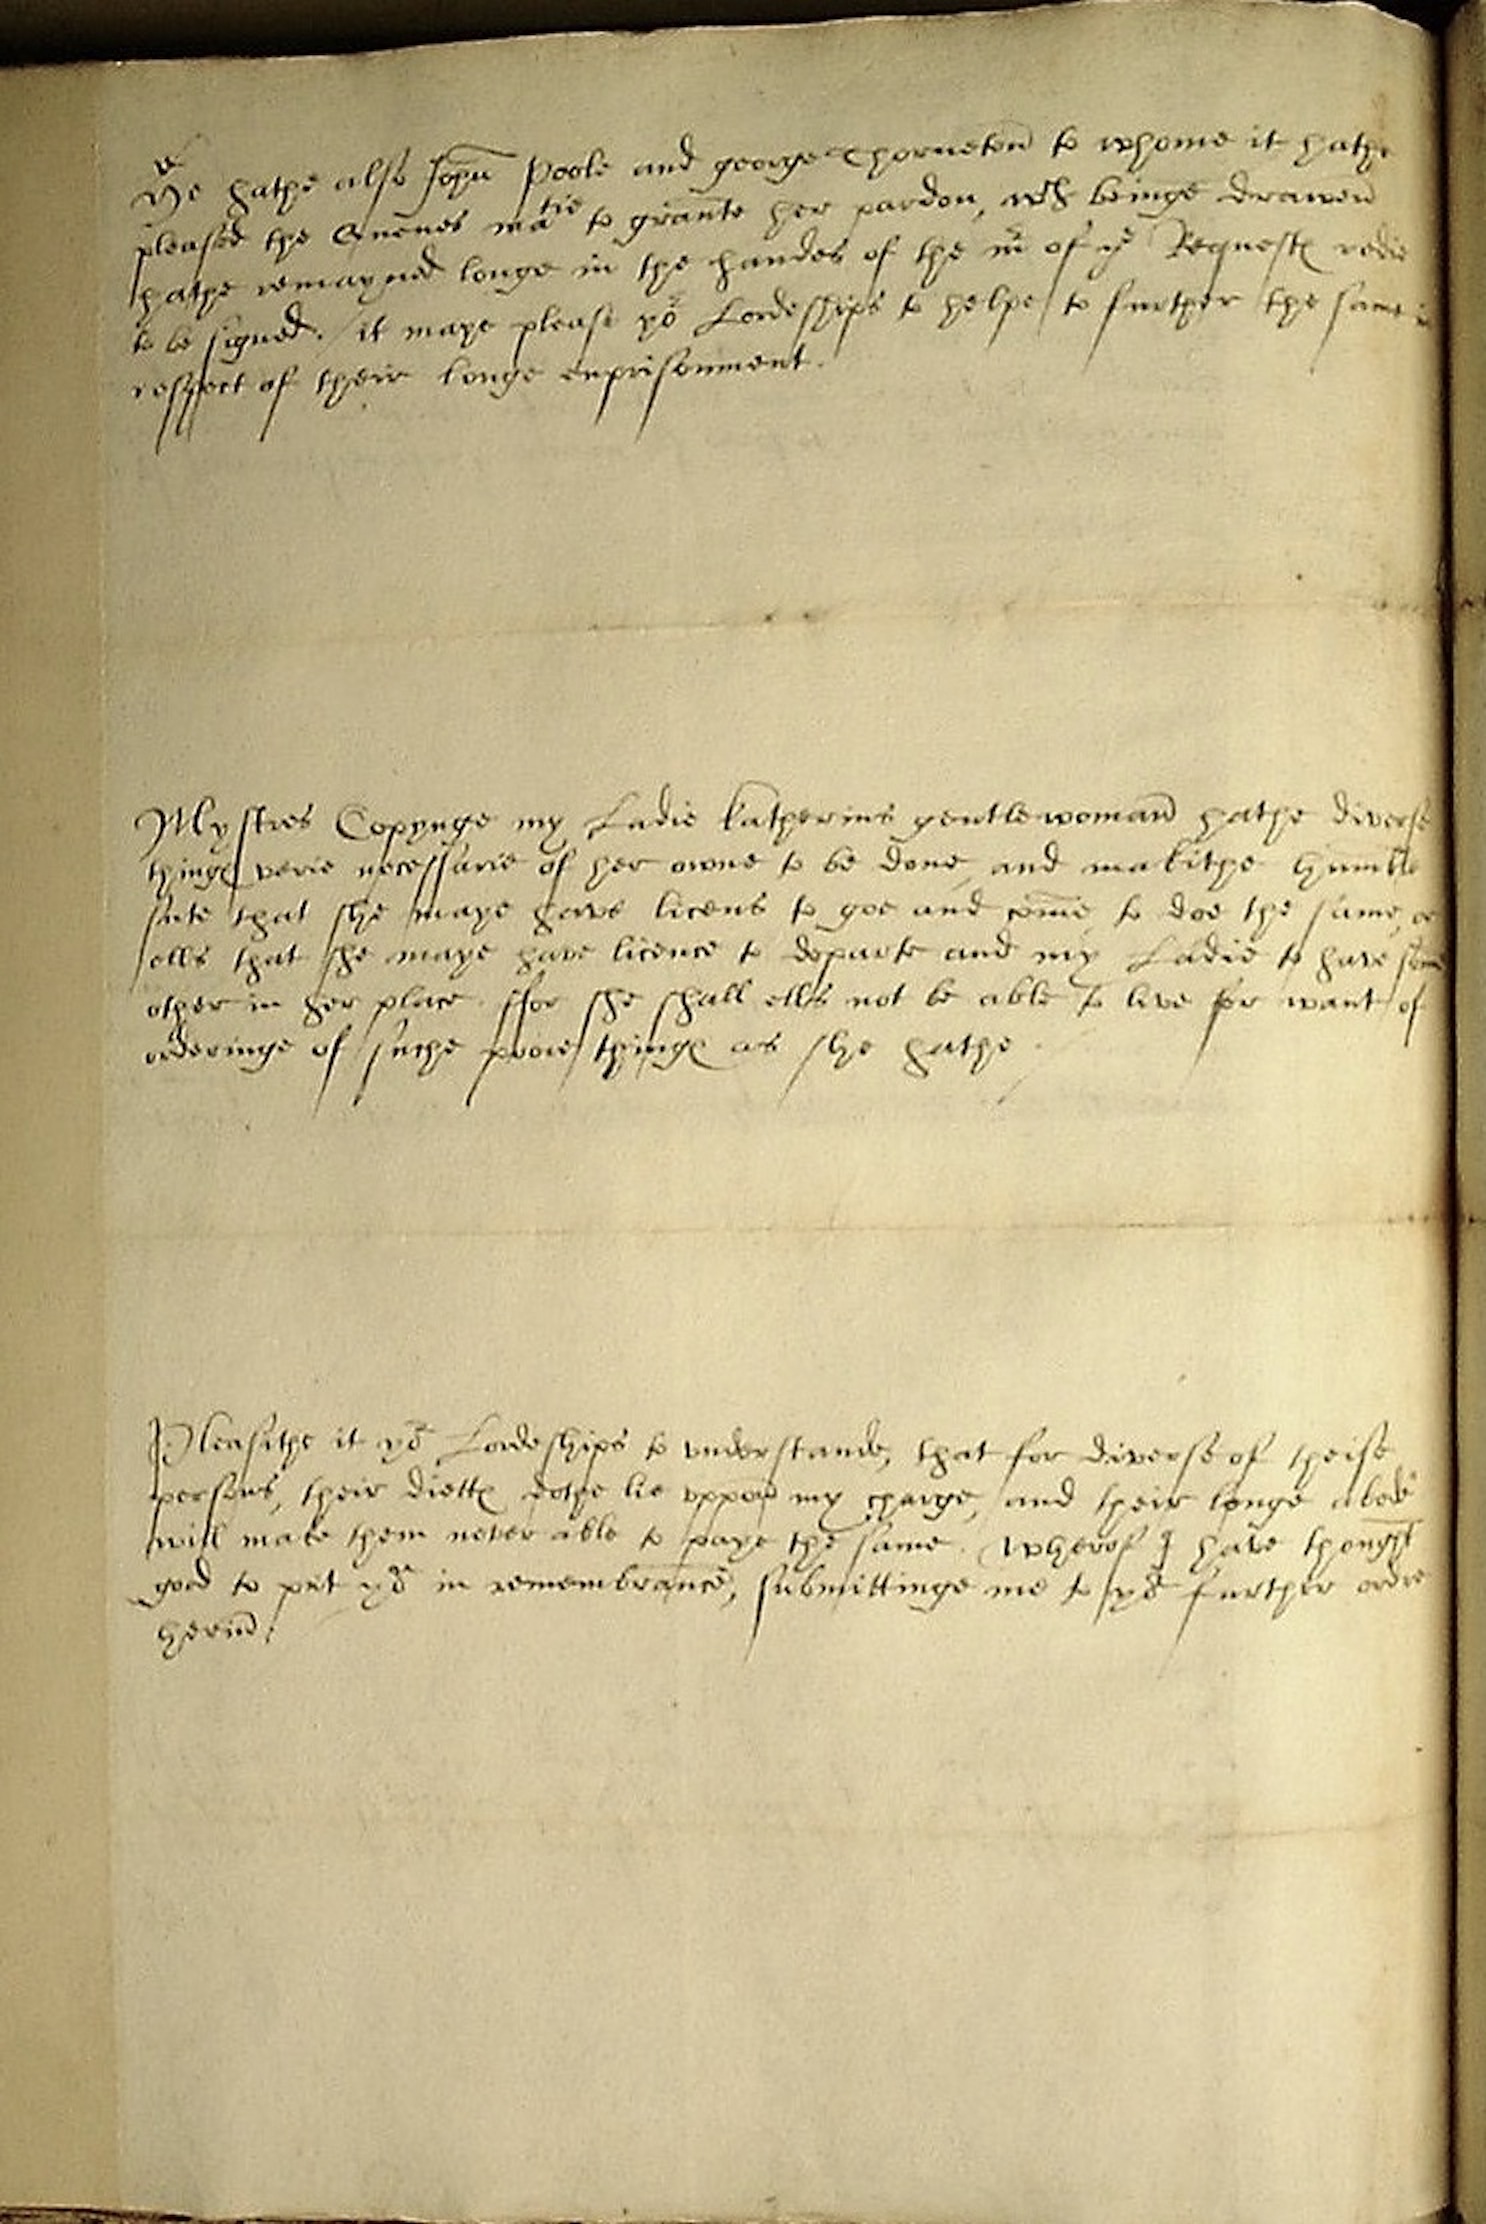 He hathe also John Poole and george Thorneton to whome it hathe
pleased the Quenes matie to graunte her pardon, wch beinge drawen
hathe remayned longe in the handes of the mr of ye Requestes redie
to be signed. it maye please yor Lordeships to helpe to further the same in
respect of their longe enprisonment.
Mystres Copynge my Ladie Katherins gentlewoman hathe diverse
thinges verie necessarie of her owne to be done, and makithe humble
sute that she maye have licens to goe and come to doe the same, or
ells that she maye have licence to departe and my Ladie to have some
other in her place. ffor she shall ells not be able to live for want of
orderinge of suche poore thinges as she hathe.
Pleasithe it yor Lordeships to understande, that for diverse of theise
persons, their diettes dothe lie uppon my charge, and their longe abode
will make them never able to paye the same. Wherof I have thought
good to put yor in remembrance, submittinge me to yor further ordre
herin.